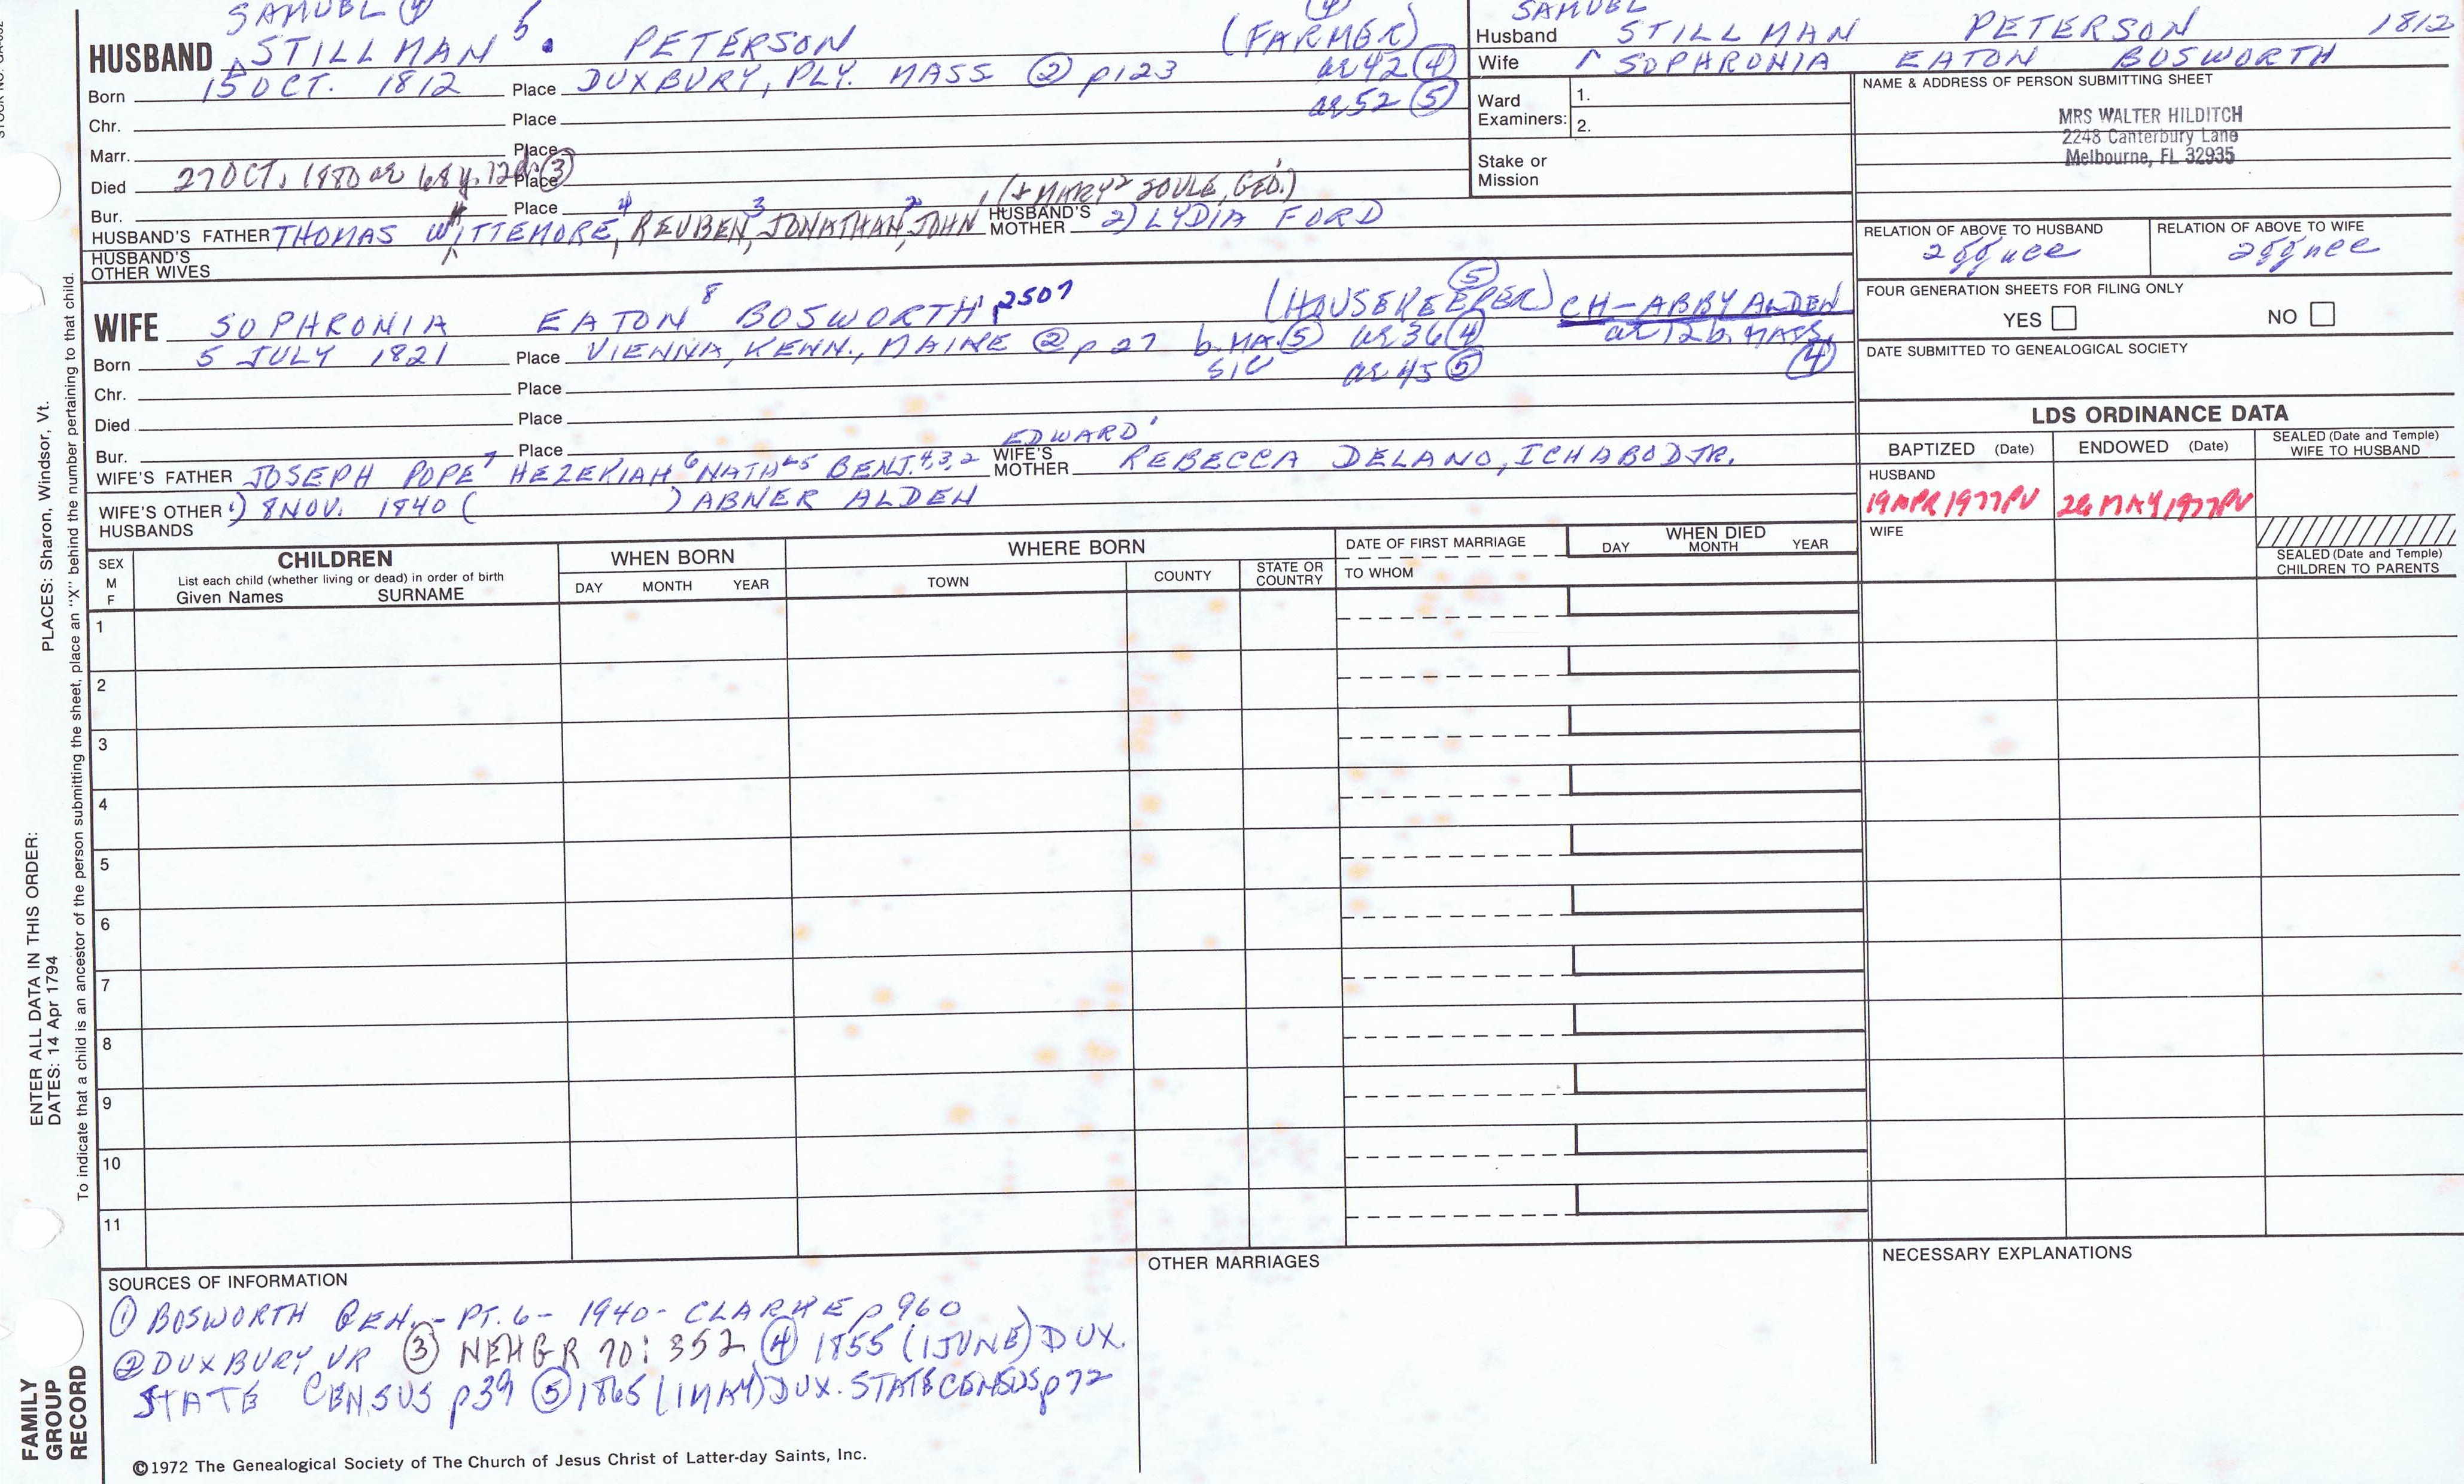 SAMUEL (4) (4)
HUSBAND STILLMAN 5. PETERSON (FARMER)
Born 15 OCT. 1812 Place DUXBURY, PLY. MASS (2) p123 ae 42 (4)
ae 52 (5)
Chr. Place
Marr. Place
Died 27 OCT. 1880 ae 68 y. 12 ds (3) Place
Bur. Place , (+ MARY2 SOULE, GEO.1)
HUSBAND'S FATHER THOMAS WITTEMORE,4 REUBEN,3 JONATHAN,2 JOHN HUSBAND'S MOTHER 2) LYDIA FORD
HUSBAND'S OTHER WIVES
SAMUEL
Husband STILLMAN PETERSON 1812
Wife SOPHRONIA EATON BOSWORTH
Ward Examiners: 1.
2.
Stake or Mission
NAME & ADDRESS OF PERSON SUBMITTING SHEET
MRS WALTER HILDITCH
2248 Canterbury Lane
Melbourne, FL 32935
RELATION OF ABOVE TO HUSBAND
RELATION OF ABOVE TO WIFE
FOUR GENERATION SHEETS FOR FILING ONLY
YES NO
DATE SUBMITTED TO GENEALOGICAL SOCIETY
(5)
WIFE SOPHRONIA EATON8 BOSWORTH 2507 (HOUSEKEEPER) CH - ABBY ALDEN
Born 5 JULY 1821 Place VIENNA, KENN., MAINE (2) p 27 b. MA. (5) ae 36 (4) ae 12 b. MASS.
SIC ae 45 (5) (4)
Chr. Place
Died Place
Bur. Place EDWARD'
WIFE'S FATHER JOSEPH POPE7 HEZEKIAH6 NATHL5 BENJ.4,3,2 WIFE'S MOTHER REBECCA DELANO, ICHABOD JR.
WIFE'S OTHER HUSBANDS 1) 8 NOV. 1840 ( ) ABNER ALDEN
LDS ORDINANCE DATA
BAPTIZED (Date) ENDOWED (Date) SEALED (Date and Temple) WIFE TO HUSBAND
HUSBAND
19 APR 1977 PV 26 MAY 1977 PV
WIFE
SEALED (Date and Temple) CHILDREN TO PARENTS
SEX M F
CHILDREN
List each child (whether living or dead) in order of birth
Given Names SURNAME
WHEN BORN
DAY MONTH YEAR
WHERE BORN
TOWN COUNTY STATE OR COUNTRY
DATE OF FIRST MARRIAGE
TO WHOM
WHEN DIED
DAY MONTH YEAR
1
2
3
4
5
6
7
8
9
10
11
SOURCES OF INFORMATION
(1) BOSWORTH GEN. - PT. 6 - 1940 - CLARKE p 960
(2) DUXBURY VR (3) NEHGR 70: 352 (4) 1855 (1 JUNE) DUX.
STATE CENSUS p39 (5) 1865 (1 MAY) DUX. STATE CENSUS p72
OTHER MARRIAGES
NECESSARY EXPLANATIONS
©1972 The Genealogical Society of The Church of Jesus Christ of Latter-day Saints, Inc.
FAMILY GROUP RECORD
ENTER ALL DATA IN THIS ORDER:
DATES: 14 Apr 1794
PLACES: Sharon, Windsor, Vt.
To indicate that a child is an ancestor of the person submitting the sheet, place an "X" behind the number pertaining to that child.